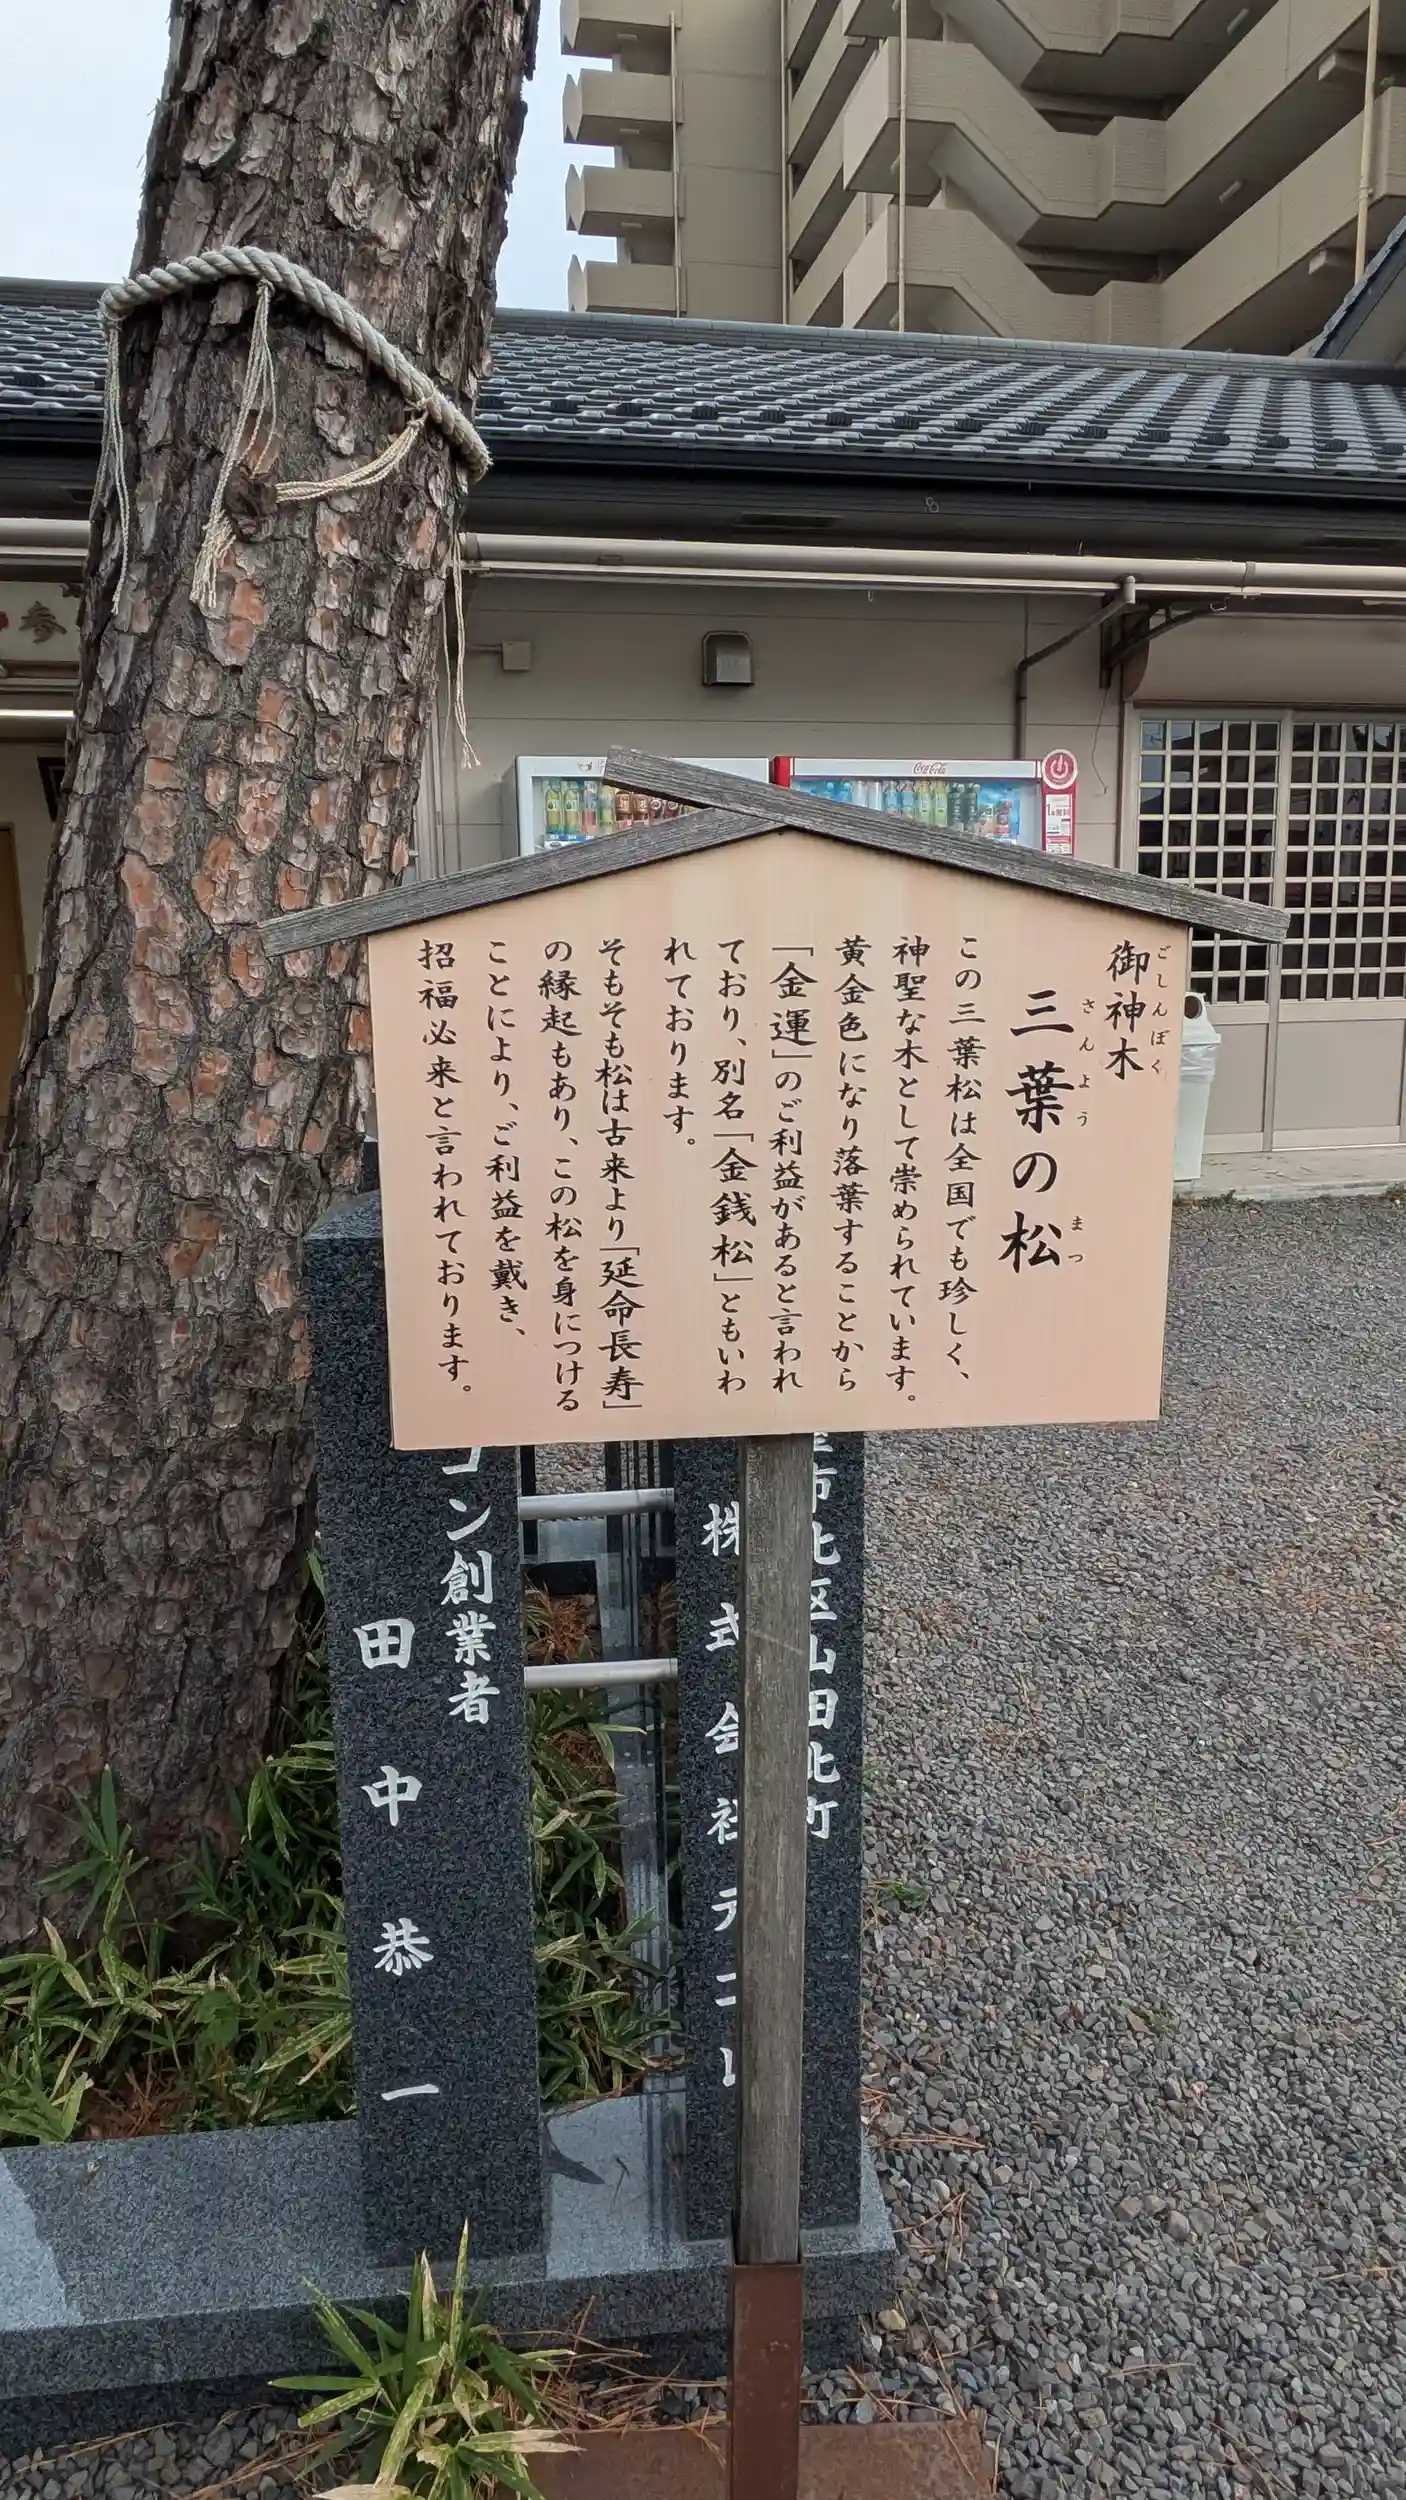 御神木
ごしんぼく
三葉の松
さんよう まつ
この三葉松は全国でも珍しく、
神聖な木として崇められています。
黄金色になり落葉することから
「金運」のご利益があると言われ
ており、別名「金銭松」ともいわ
れております。
そもそも松は古来より「延命長寿」
の縁起もあり、この松を身につける
ことにより、ご利益を戴き、
招福必来と言われております。
市北区山田北町
株式会社
コン創業者
田中恭一
Coca-Cola